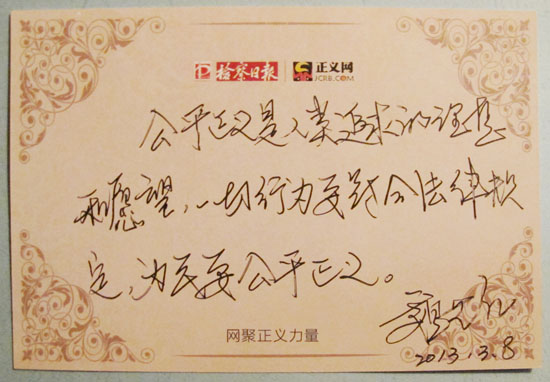 检察日报 正义网
JCRB.COM
公平正义是人类追求的理想
和愿望，一切行为要符合法律规
定，为民要公平正义。
2013.3.8
网聚正义力量